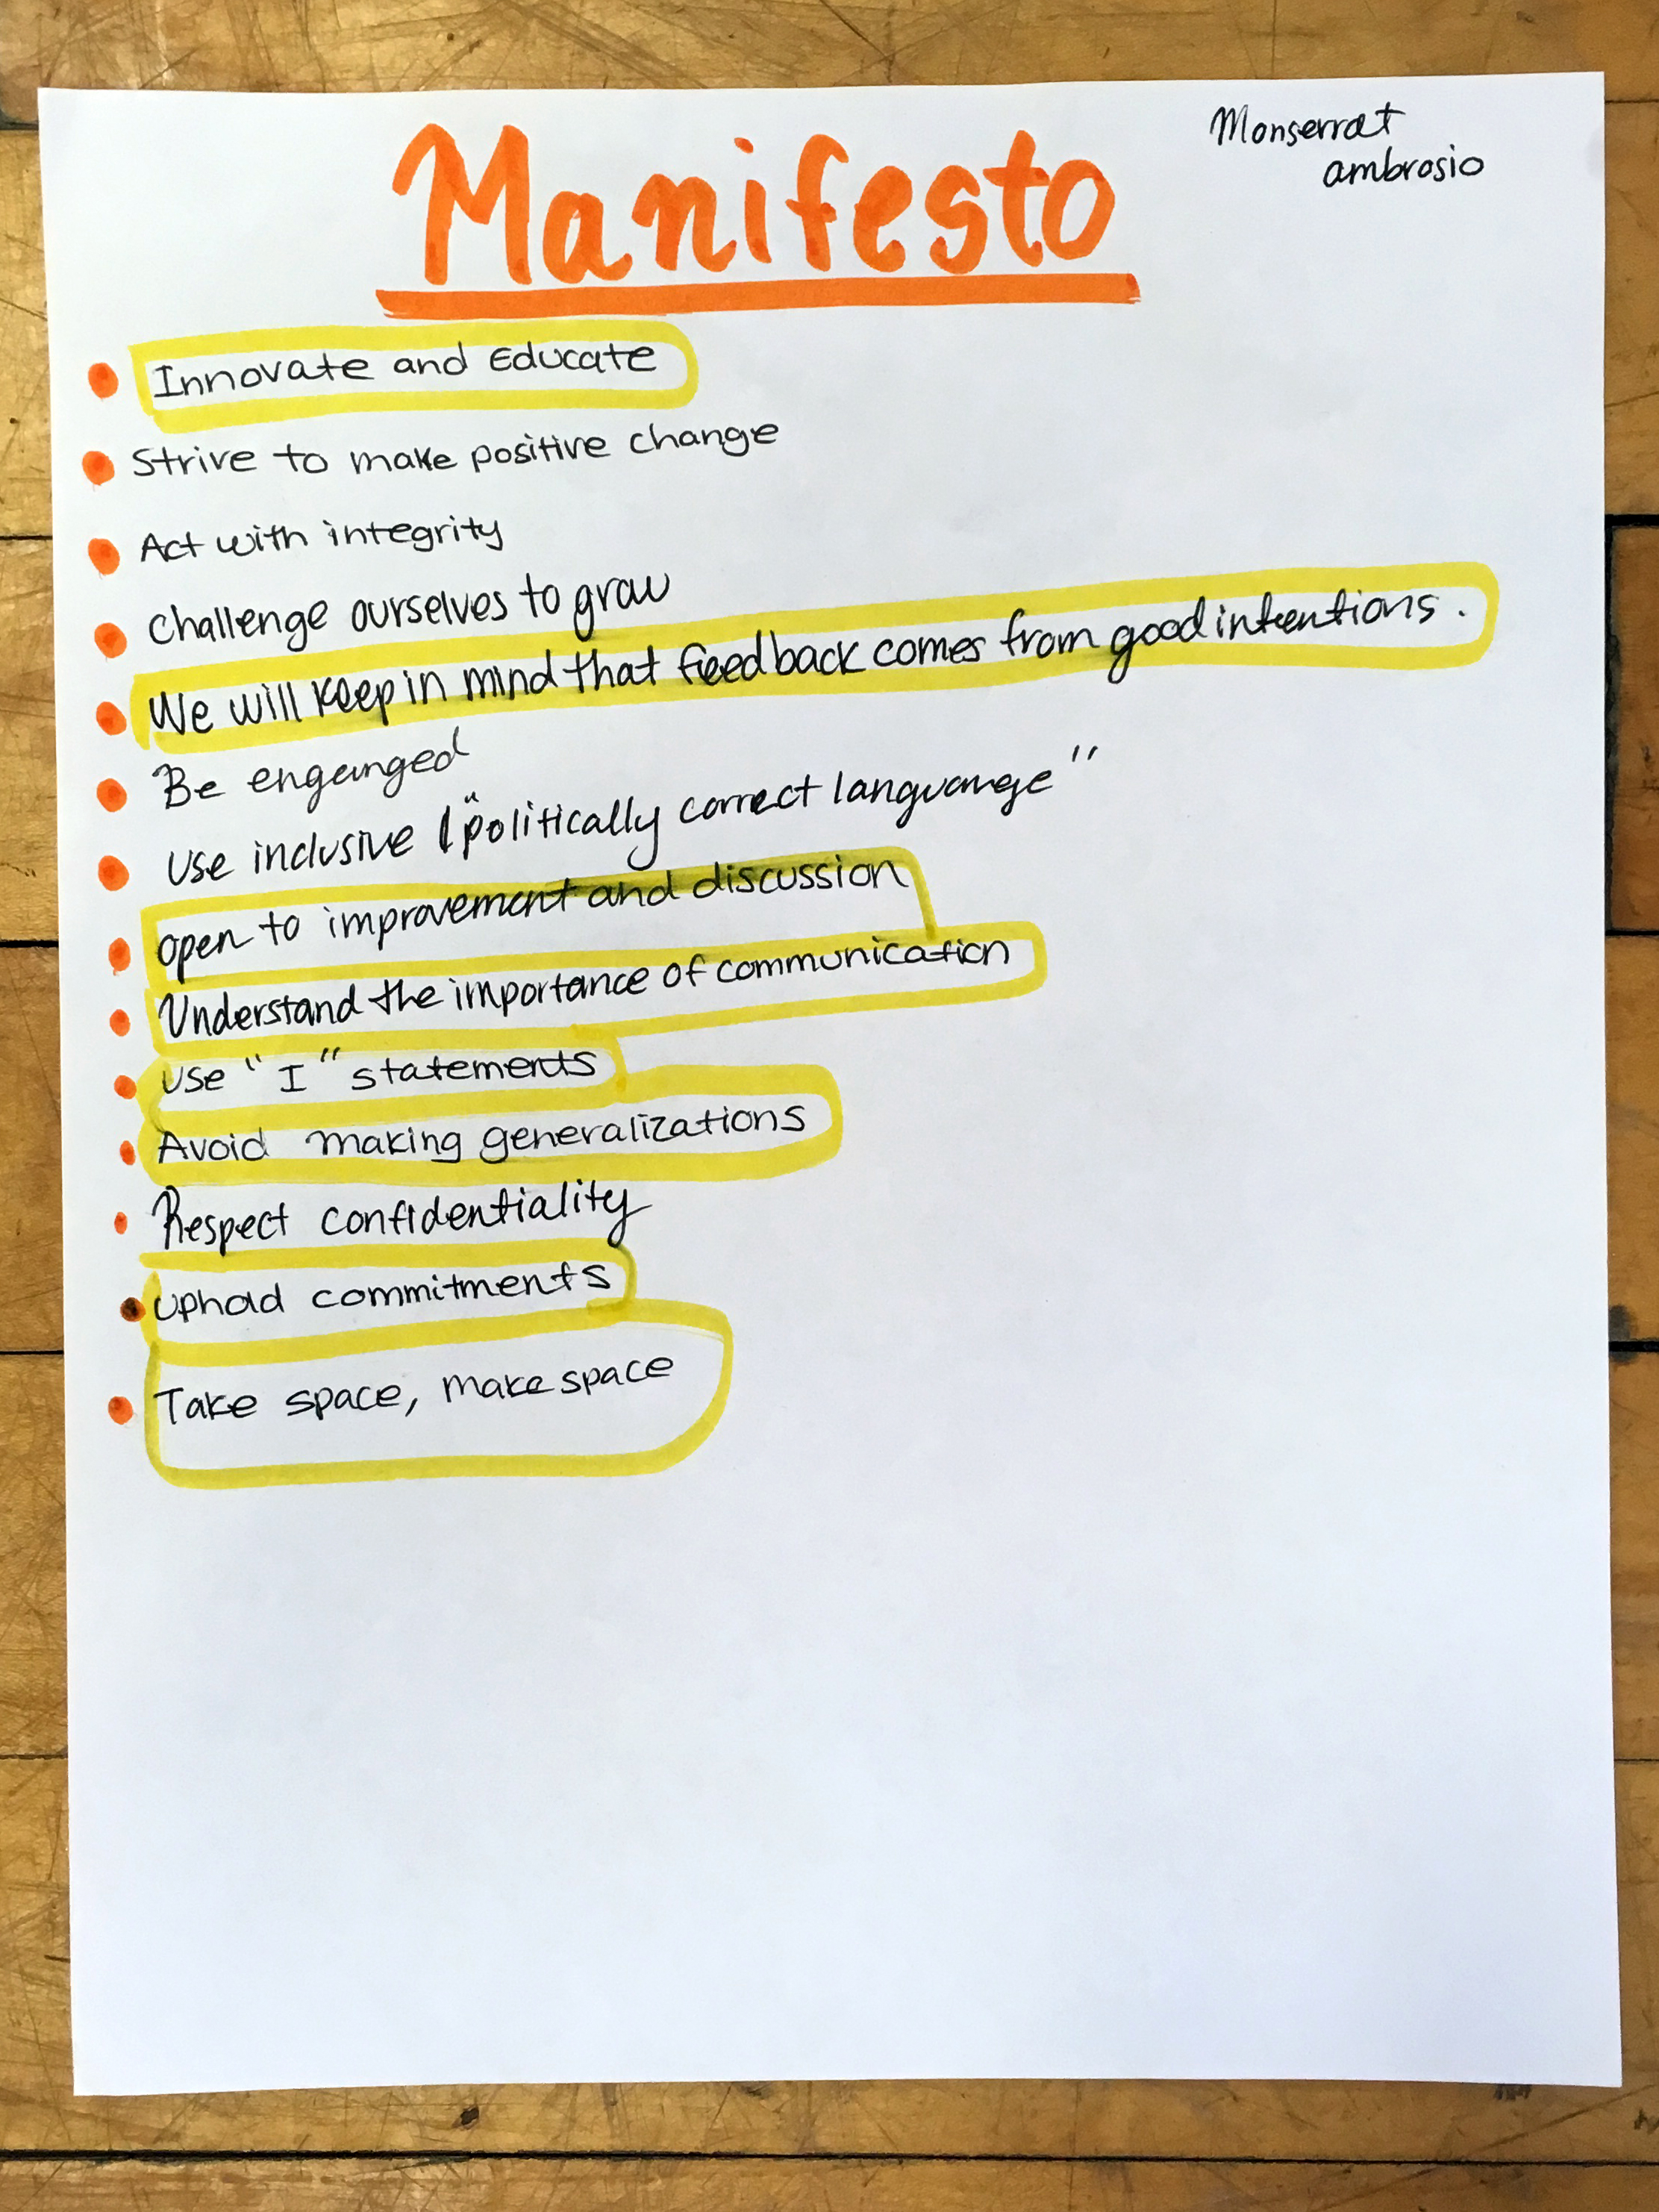 Monserrat
ambrosio
Manifesto
Innovate and Educate
Strive to make positive change
Act with integrity
Challenge ourselves to grow
We will keep in mind that feedback comes from good intentions.
Be enganged
Use inclusive ("politically correct languange"
open to improvement and discussion
Understand the importance of communication
Use "I" statements
Avoid making generalizations
Respect confidentiality
Uphold commitments
Take space, make space